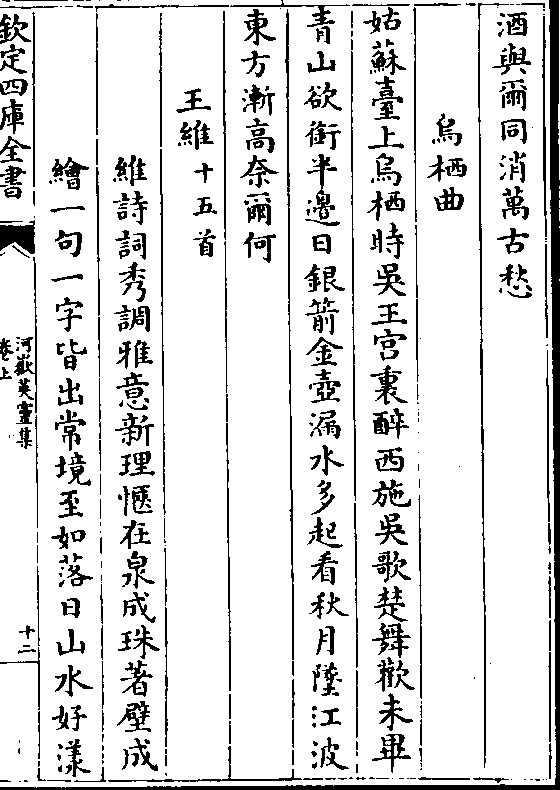 酒與爾同消萬古愁
烏栖曲
姑蘇臺上烏栖時吳王宮裏醉西施吳歌楚舞歡未畢
青山欲銜半邊日銀箭金壺漏水多起看秋月墜江波
東方漸高奈爾何
王維十五首
維詩詞秀調雅意新理愜在泉成珠著壁成
繪一句一字皆出常境至如落日山水好漾
欽定四庫全書
河嶽英靈集
卷上
十二